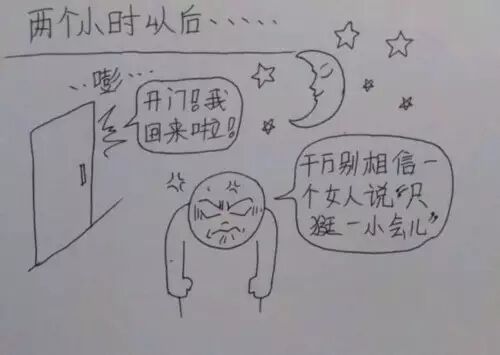 两个小时以后······
··嘭···
开门!我
回来啦!
千万别相信一
个女人说“只
逛一小会儿”